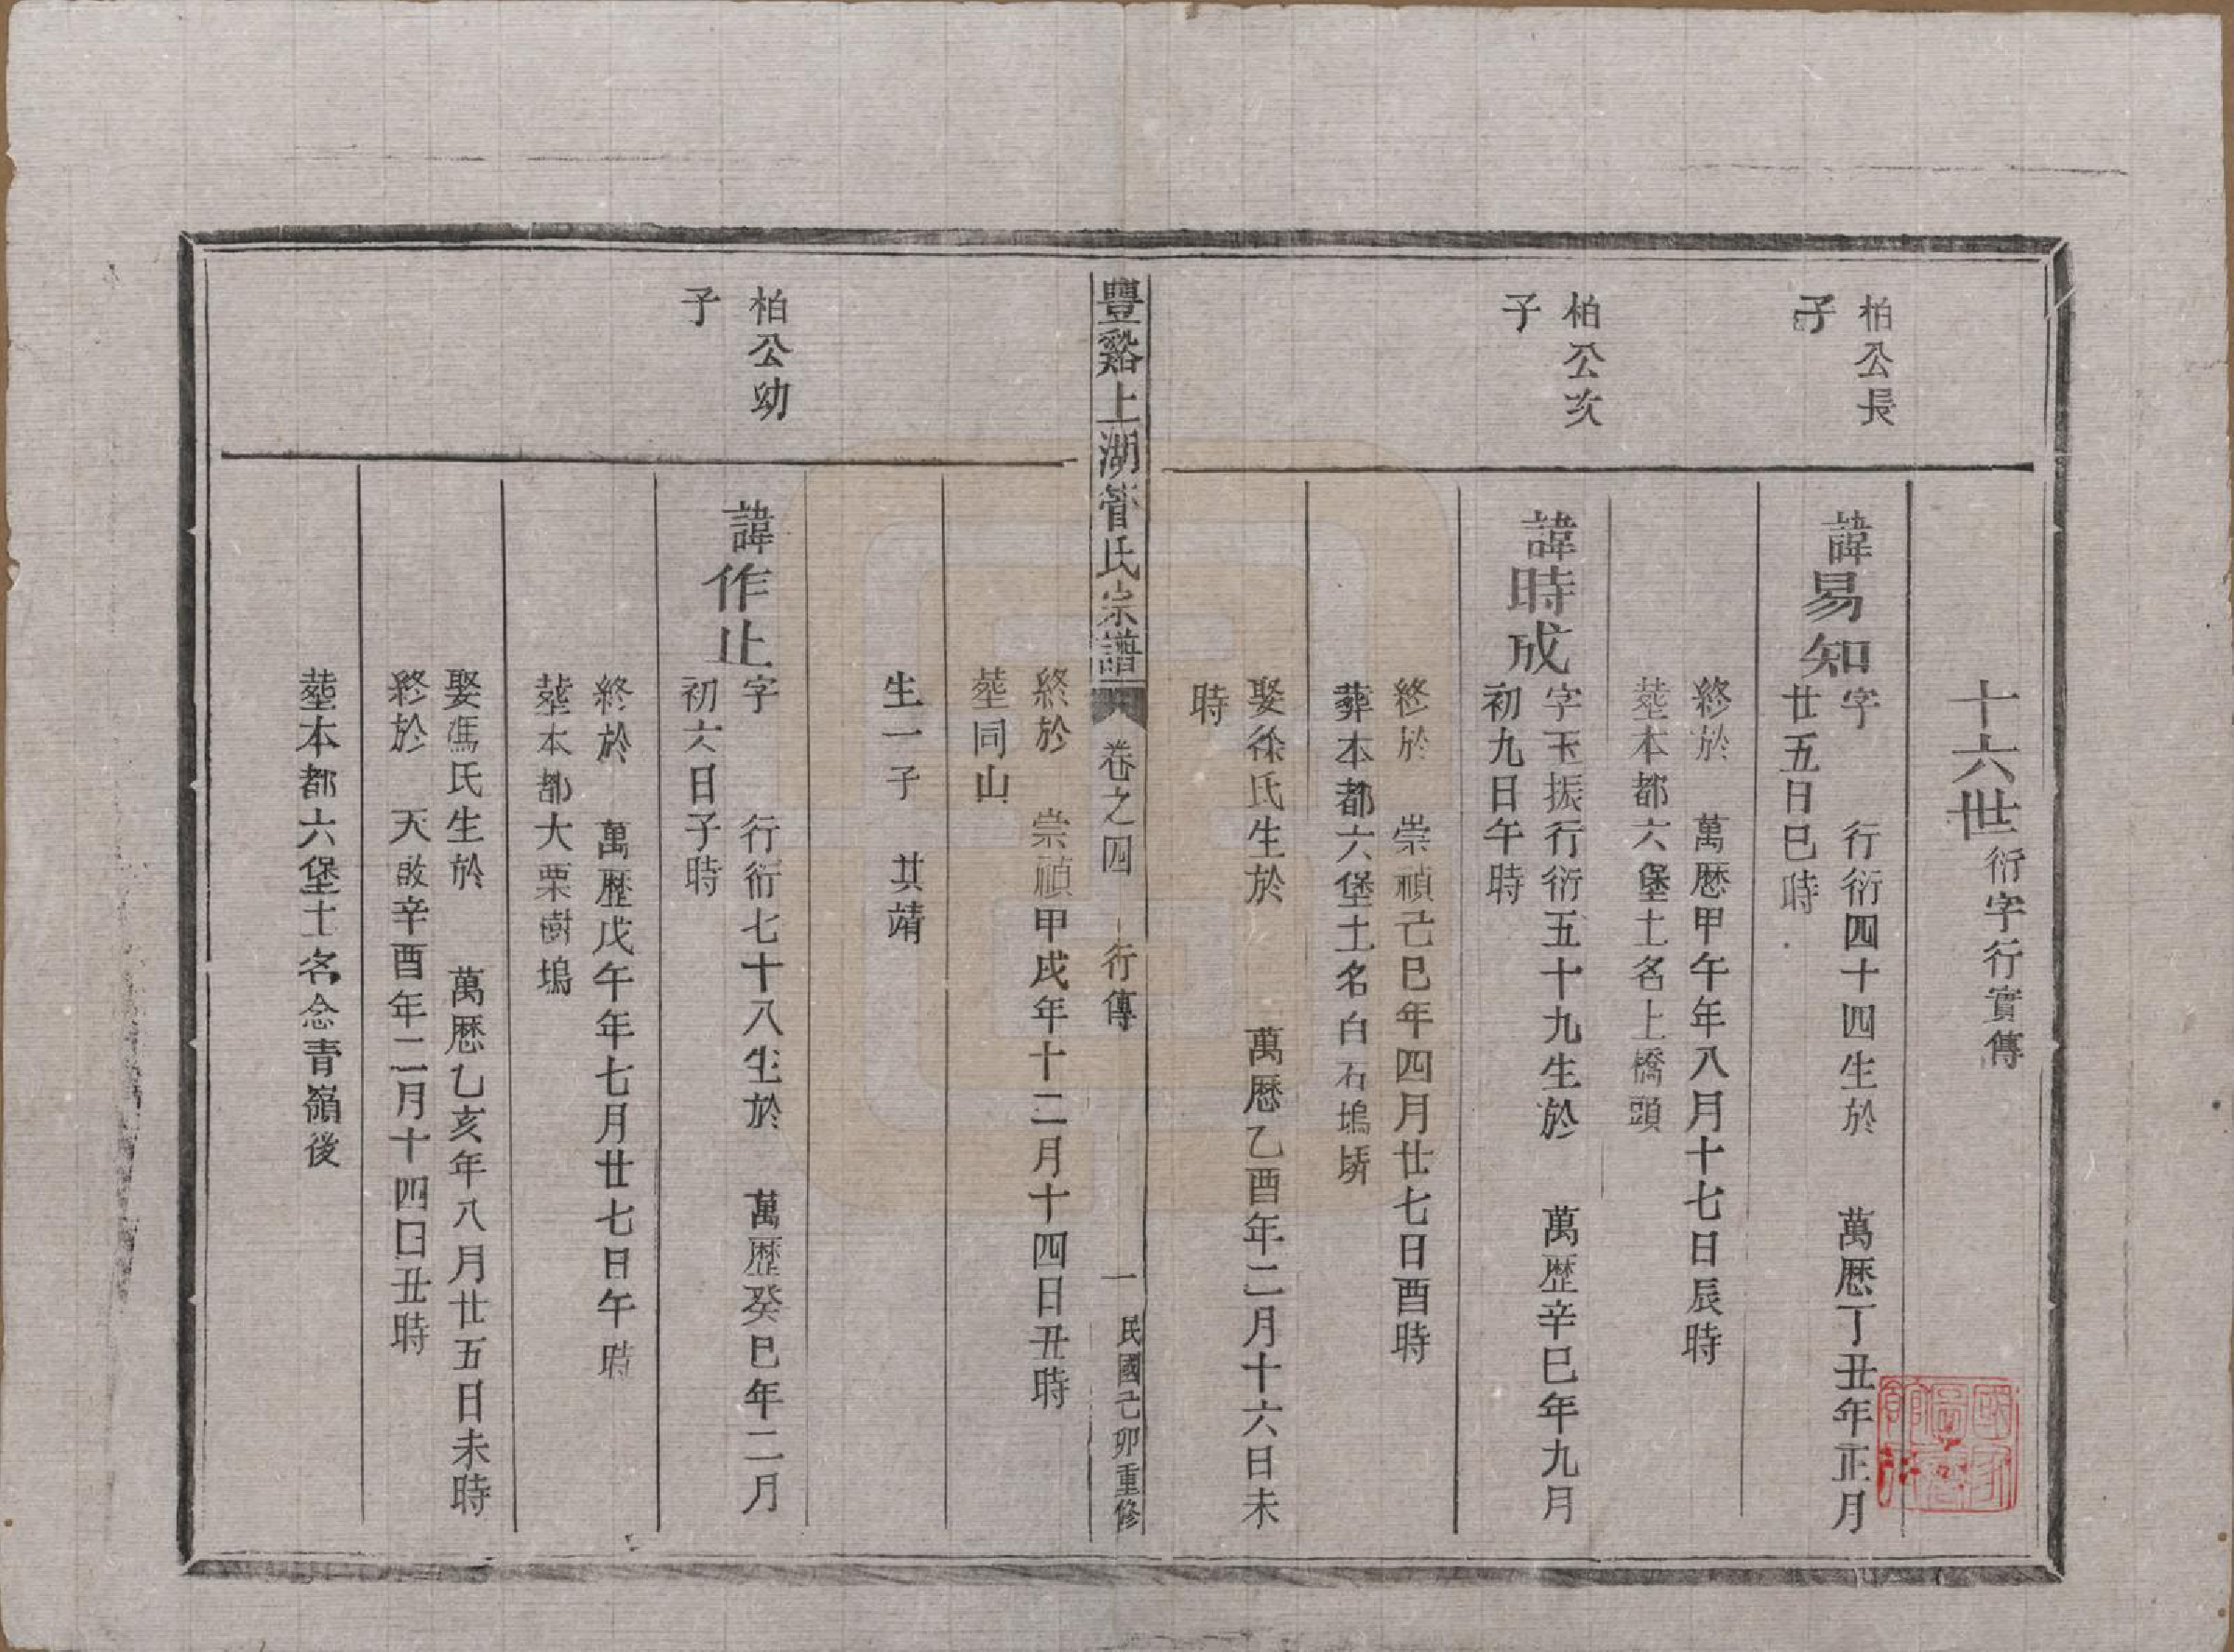 十六世衍字行實傳
柏公長
子
諱易知字　行衍四十四生於　萬厯丁丑年正月
廿五日巳時
終於　萬厯甲午年八月十七日辰時
塟本都六堡土名上橋頭
柏公亥
子
諱時成字玉振行衍五十九生於　萬歷辛巳年九月
初九日午時
終於　崇禎己巳年四月廿七日酉時
葬本都六堡土名白石塢塝
娶徐氏生於　萬厯乙酉年二月十六日未
時
豐谿上湖管氏宗譜　卷之四　行傳　一　民國己卯重修
終於　崇禎甲戌年十二月十四日丑時
塟同山
生一子　其靖
柏公幼
子
諱作止字　行衍七十八生於　萬歷癸巳年二月
初六日子時
終於　萬歷戊午年七月廿七日午時
塟本都大栗樹塢
娶馮氏生於　萬厯乙亥年八月廿五日未時
終於　天啟辛酉年二月十四日丑時
塟本都六堡土名念青嶺後